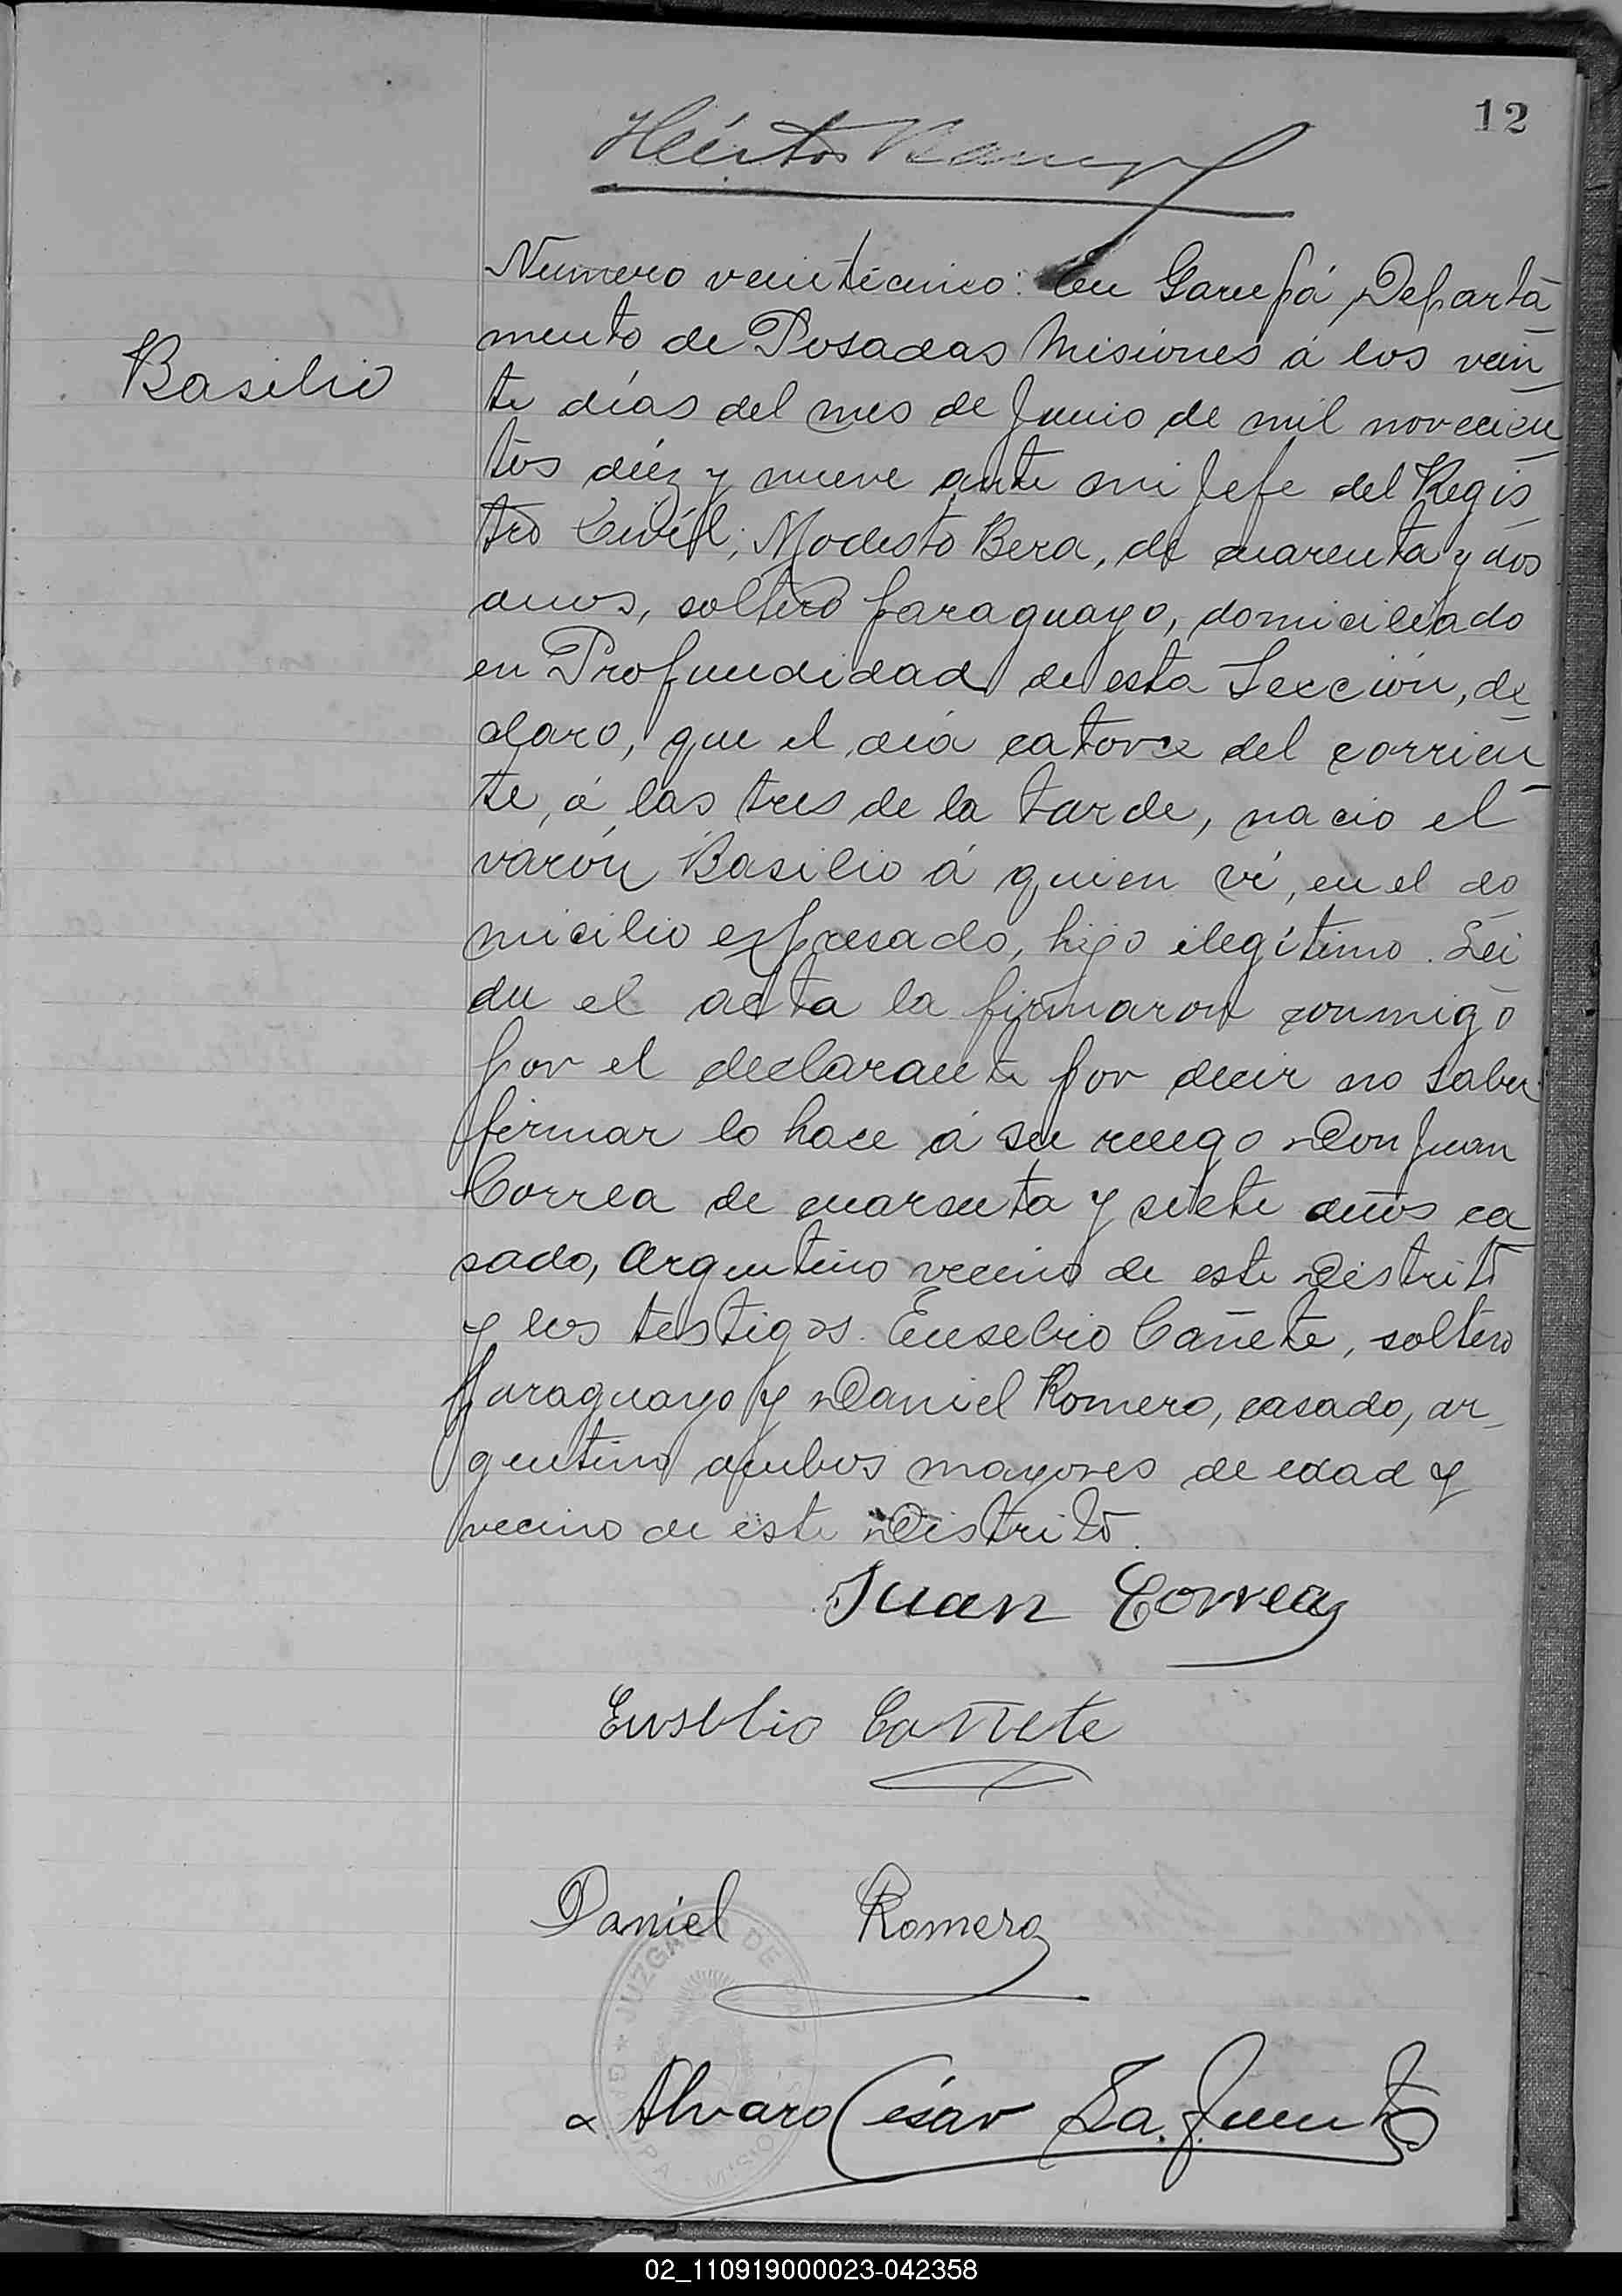 12
Numero veinticinco: En Garupá Departa
mento de Posadas Misiones á los vein
Basilio
te días del mes de Junio de mil novecien
tos diéz y nueve ante mi Jefe del Regis
tro Civíl; Modesto Bera, de cuarenta y dos
anos, soltero paraguayo, domiciliado
en Profundidad de esta Sección, de
claro, que el día catorce del corrien
te, á las tres de la tarde, nacio el
varón Basilio á quien ví, en el do
micilio expresado, hijo ilegítimo. Lei
da el acta la firmaron conmigo
por el declarante por decir no saber
firmar lo hace á su ruego Don Juan
Correa de cuarenta y siete años ca
sado, Argentino vecino de este Distrito
y los testigos. Eusebio Cañete, soltero
paraguayo y Daniel Romero, casado, ar
gentino ambos mayores de edad y
vecino de este Distrito.
Juan Correa
Eusebio Cañete
Daniel Romero
JUZGADO DE PAZ
GARUPA
Alvaro César La.Fuente
02_110919000023-042358